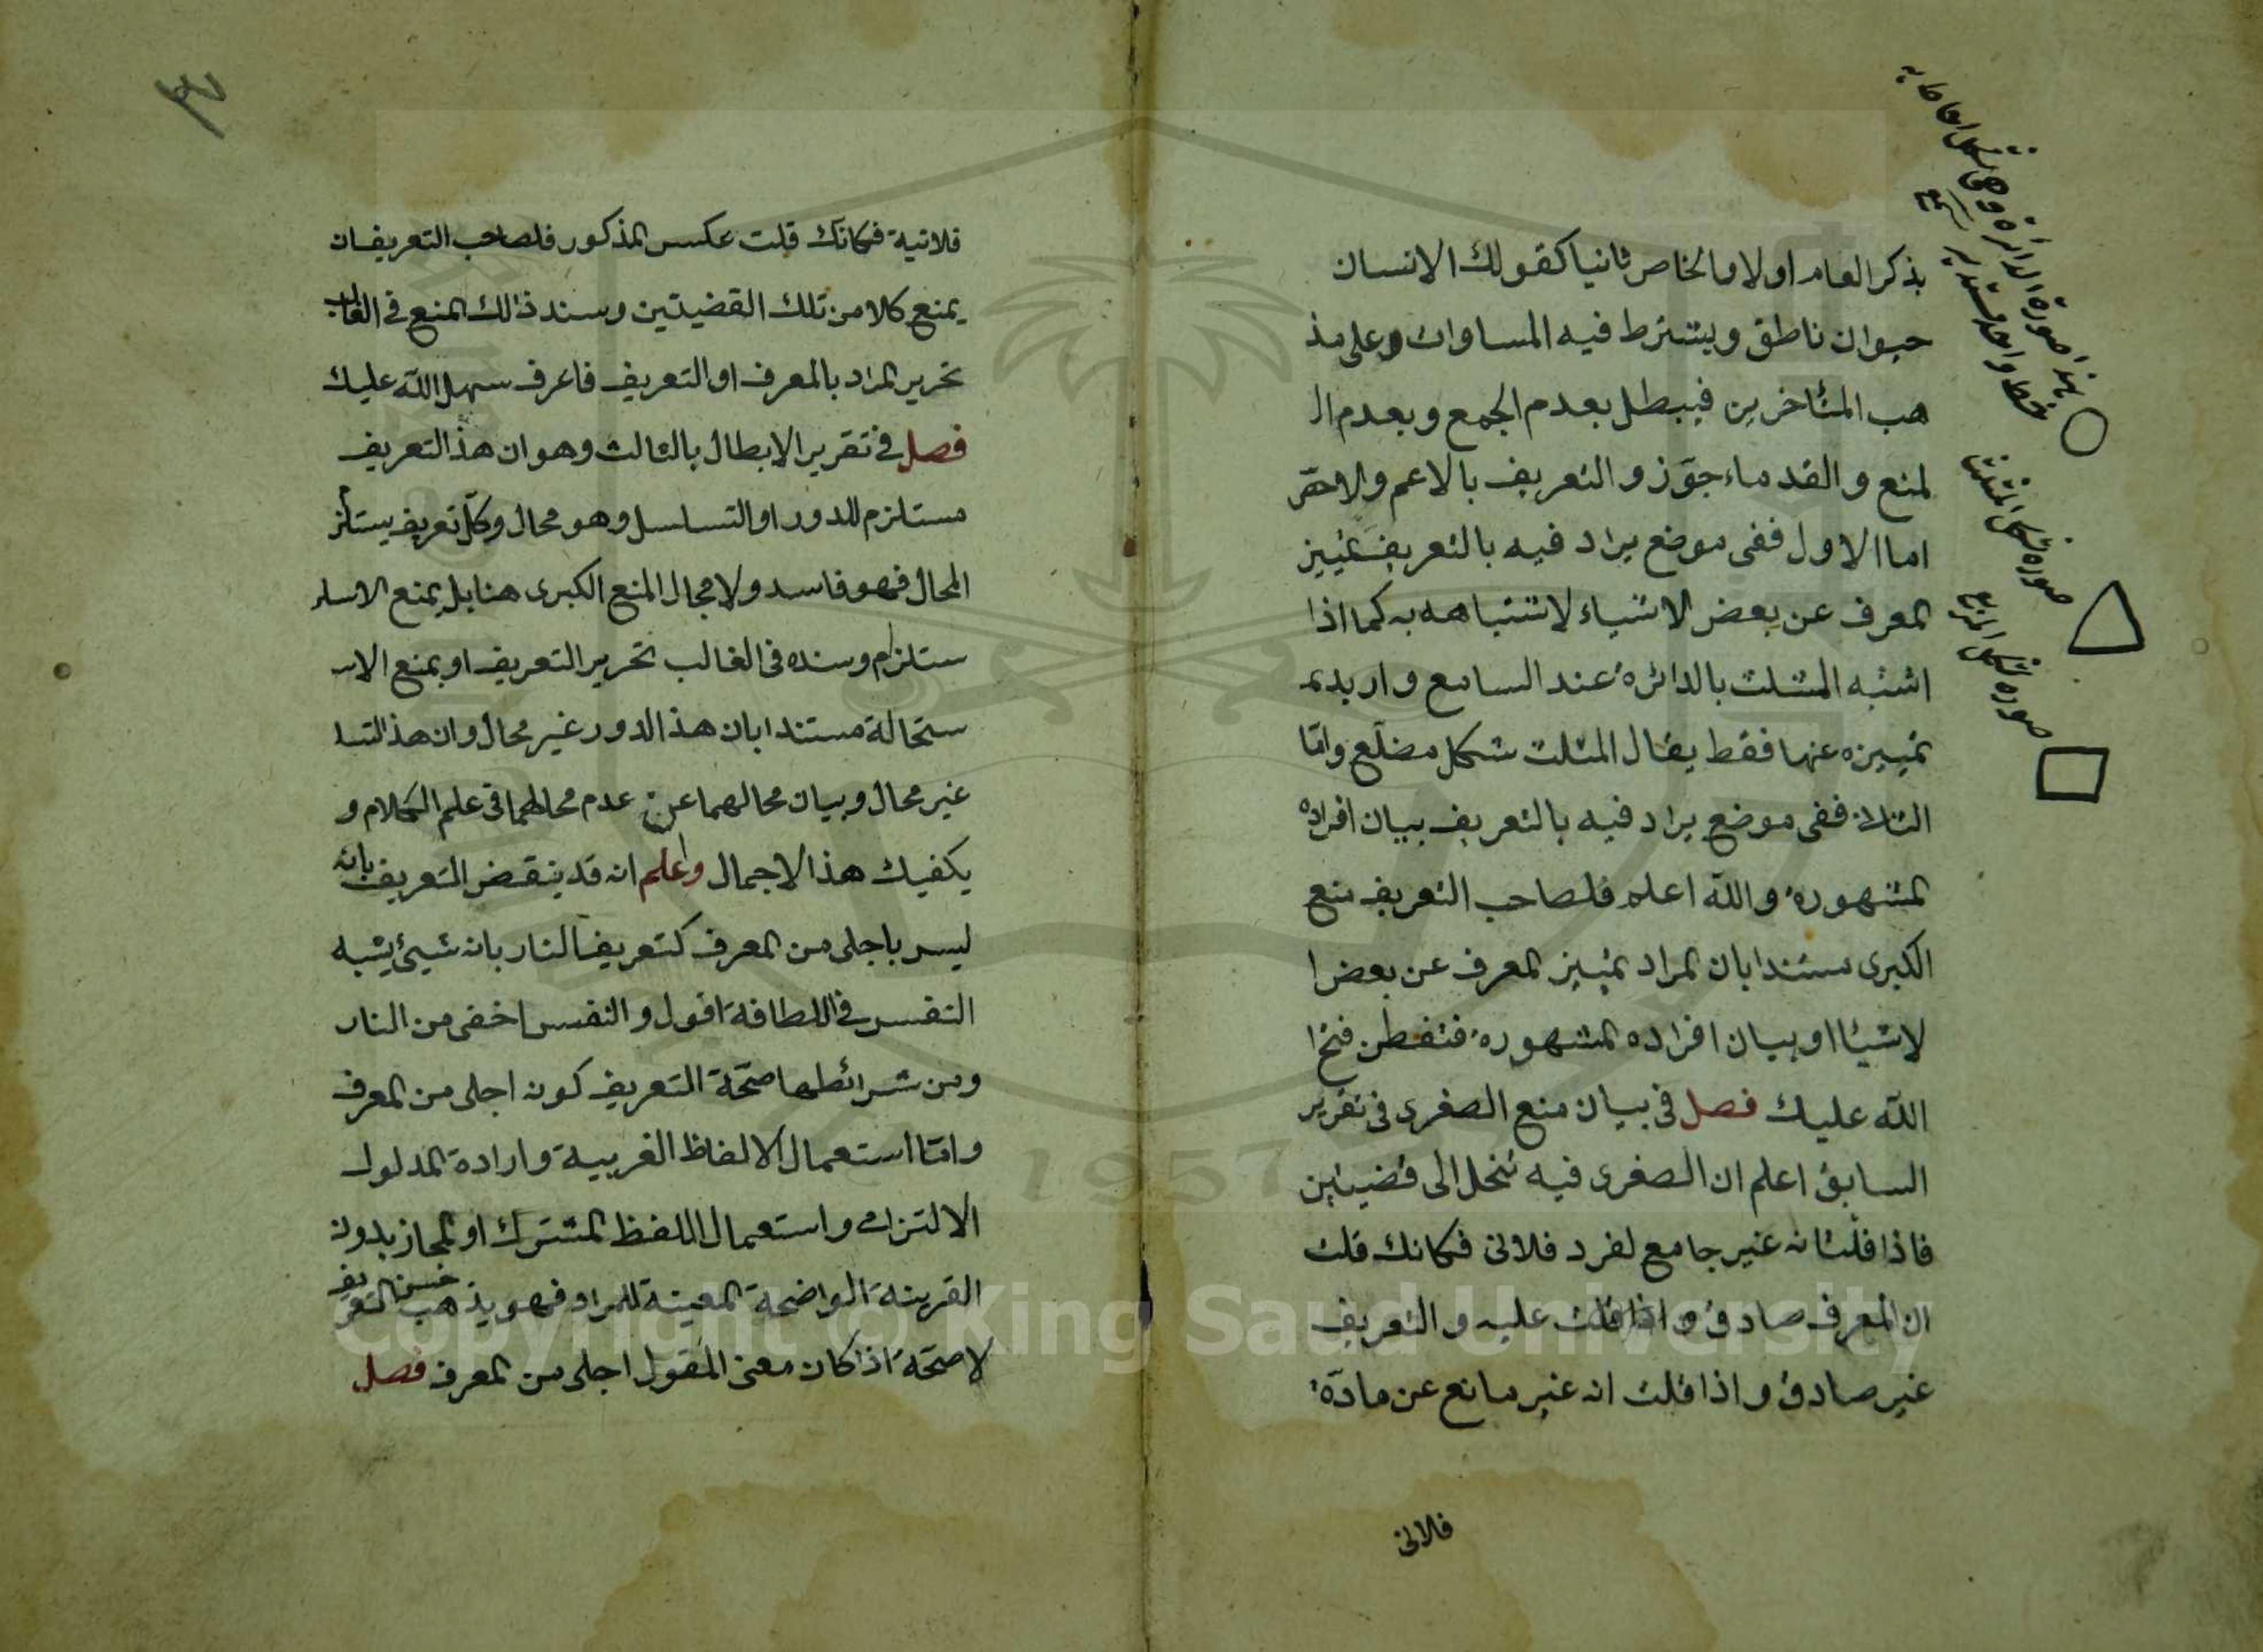 بذكر العام اولا والخاص ثانيا كقولك الانسان
حيوان ناطق ويشترط فيه المساوات وعلى مذ
هب المتاخرين فيبطل بعدم الجمع وبعدم ا
لمنع والقدماء جوّزو التعريف بالاعم والاخص
اما الاول ففى موضع يراد فيه بالتعريف تمييز
المعرف عن بعض الاشياء لاشتباهه به كما اذا
اشتبه المثلث بالدائرة عند السامع واريد
تمييزه عنها فقط يقال المثلث شكل مضلّع وامّا
الثلاث ففى موضع يراد فيه بالتعريف بيان افراده
المشهورة والله اعلم فلصاحب التعريف منع
الكبرى مستندا بان المراد تمييز المعرف عن بعض ا
لاشيا او بيان افراده المشهورة فتفطن فتح ا
الله عليك فصل فى بيان منع الصغرى فى تقرير
السابق اعلم ان الصغرى فيه تنحل الى قضيتين
فاذا قلت انه غير جامع لفرد فلانى فكانك قلت
ان المعرف صادق واذا قلت عليه والتعريف
غير صادق واذا قلت انه غير مانع عن مادّة
فلانى
هذا صورة الدائرة وهى شكل احاط به
خط واحد مستدير
صورة شكل المثلث
صورة شكل المربع
٣
فلانية فكانك قلت عكس المذكور فلصاحب التعريف ان
يمنع كلا من تلك القضيتين وسند ذالك المنع فى الغالب
تحرير المراد بالمعرف او التعريف فاعرف سهل الله عليك
فصل فى تقرير الابطال بالثالث وهو ان هذ التعريف
مستلزم للدور او التسلسل وهو محال وكلّ تعريف يستلز
المحال فهو فاسد ولا مجال المنع الكبرى هنا بل يمنع الا
ستلزام وسنده فى الغالب تحرير التعريف او يمنع الا
ستحالة مستندا بان هذ الدور غير محال وان هذ التسا
غير محال وبيان محالهما عن عدم محالهما فى علم الكلام و
يكفيك هذ الاجمال واعلم انه قد ينقض التعريف بانه
ليس باجلى من المعرف كتعريف النار بانه شيئ يشبه
النفس فى اللطافة اقول والنفس اخفى من النار
ومن شرائطها صحّة التعريف كونه اجلى من المعرف
وامّا استعمال الالفاظ الغريبة وارادة المدلول
الالتزامى واستعمال اللفظ المشترك او المجاز بدون
القرينة الواضحة المعينة للمراد فهو يذهب حسن التعريف
لا صحّة اذا كان معنى المقول اجلى من المعرف فصل
Copyright © King Saud University
1957